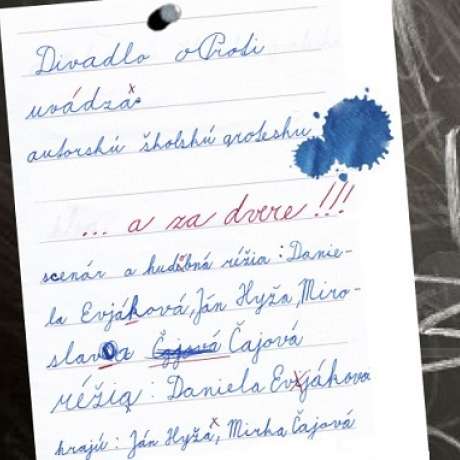 Divadlo oProti
uvádza
autorskú školskú grotesku
... a za dvere!!!
scenár a hudobná réžia: Danie-
la Evjáková, Ján Hyža, Miro-
slava Čajová Čajová
réžia: Daniela Evjáková
hrajú: Ján Hyža, Mirka Čajová